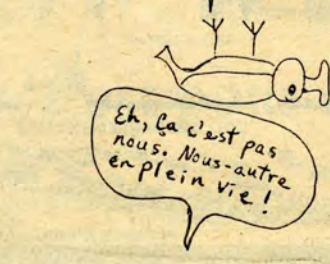 Eh, Ça c'est pas
nous. Nous-autre
en plein vie!